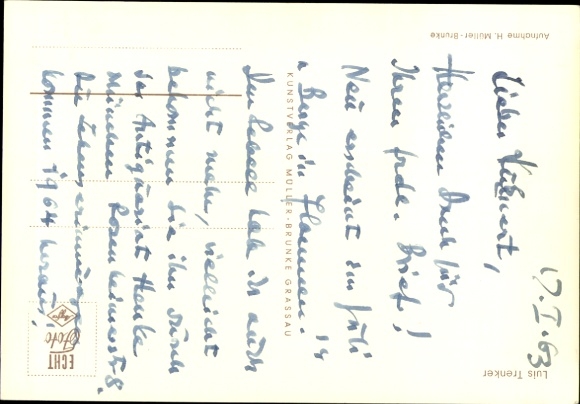 Luis Trenker
17. I. 63
Lieber Volkmert,
Herzlichen Dank für
Ihren frdl. Brief!
Neu erscheint im Juli
"Berge in Flammen".
Den habe ich auch
nicht mehr, vielleicht
bekommen Sie ihn durch
das Antiquariat Henke
München Rosenheimerstr. 8.
Die Lebenserinnerungen
kommen 1964 heraus!
Aufnahme H. Müller-Brunke
KUNSTVERLAG MÜLLER-BRUNKE GRASSAU
ECHT
Foto
Agfa